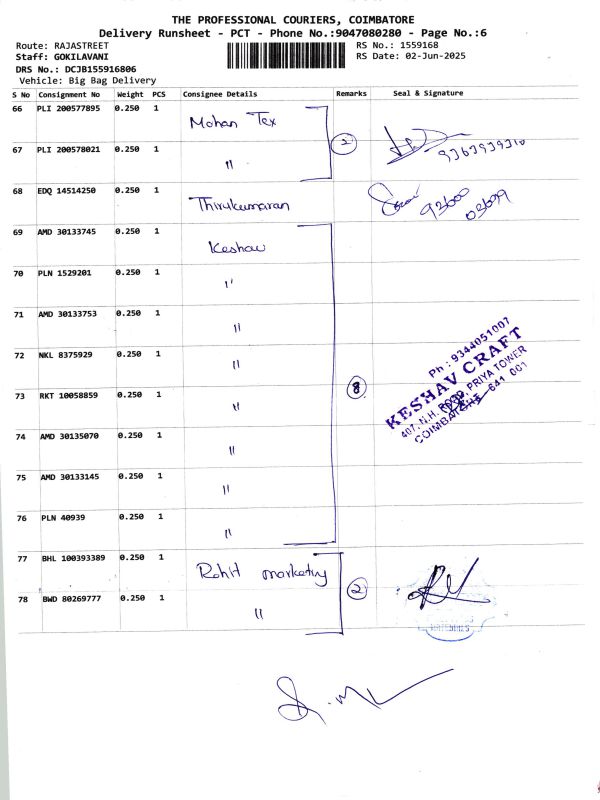 THE PROFESSIONAL COURIERS, COIMBATORE
Delivery Runsheet - PCT - Phone No.:9047080280 - Page No.:6
Route: RAJASTREET
Staff: GOKILAVANI
DRS No.: DCJB155916806
Vehicle: Big Bag Delivery
RS No.: 1559168
RS Date: 02-Jun-2025
S No Consignment No Weight PCS Consignee Details Remarks Seal & Signature
66 PLI 200577895 0.250 1 Mohan Tex
67 PLI 200578021 0.250 1 " 2 9363939310
68 EDQ 14514250 0.250 1 Thirukumaran 93600
03699
69 AMD 30133745 0.250 1 Keshav
70 PLN 1529201 0.250 1 "
71 AMD 30133753 0.250 1 "
72 NKL 8375929 0.250 1 "
73 RKT 10058859 0.250 1 " 8
74 AMD 30135070 0.250 1 "
75 AMD 30133145 0.250 1 "
76 PLN 40939 0.250 1 "
Ph : 9344051007
KESHAV CRAFT
407, N.H. ROAD, PRIYA TOWER
COIMBATORE - 641 001
77 BHL 100393389 0.250 1 Rohit marketing
78 BWD 80269777 0.250 1 " 2